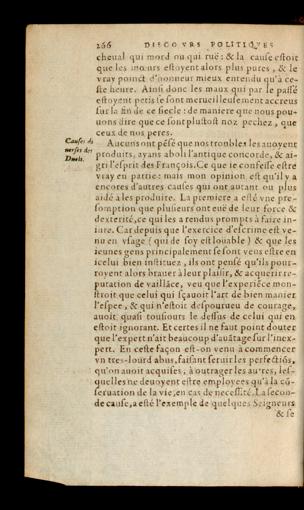 266 DISCOVRS POLITIQVES
cheual qui mord ou qui ruë: & la cause estoit
que les mœurs estoyent alors plus pures, & le
vray poinct d'honneur mieux entendu qu'à ce-
ste heure. Ainsi donc les maux qui par le passé
estoyent petis se sont merueilleusement accreus
sur la fin de ce siecle: de maniere que nous pou-
uons dire que ce sont plustost noz pechez, que
ceux de nos peres.
Causes di-
uerses des
Duels.
Aucuns ont pẽsé que nos troubles les auoyent
produits, ayans aboli l'antique concorde, & ai-
gri l'esprit des François. Ce que ie confesse estre
vray en partie: mais mon opinion est qu'il y a
encores d'autres causes qui ont autant ou plus
aidé à les produire. La premiere a esté vne pre-
somption que plusieurs ont euë de leur force &
dexterité, ce qui les a rendus prompts à faire in-
iure. Car depuis que l'exercice d'escrime est ve-
nu en vsage (qui de soy est louable) & que les
ieunes gens principalement se sont veus estre en
icelui bien instituez, ils ont pensé qu'ils pour-
royent alors brauer à leur plaisir, & acquerir re-
putation de vaillãce, veu que l'experiẽce mon-
stroit que celui qui sçauoit l'art de bien manier
l'espee, & qui n'estoit despourueu de courage,
auoit quasi tousiours le dessus de celui qui en
estoit ignorant. Et certes il ne faut point douter
que l'expert n'ait beaucoup d'auãtage sur l'inex-
pert. En ceste façon est-on venu à commencer
vn tres-lourd abus, faisant seruir les perfectiõs,
qu'on auoit acquises, à outrager les autres, les-
quelles ne deuoyent estre employees qu'à la cõ-
seruation de la vie, en cas de necessité. La secon-
de cause, a esté l'exemple de quelques Seigneurs
& se